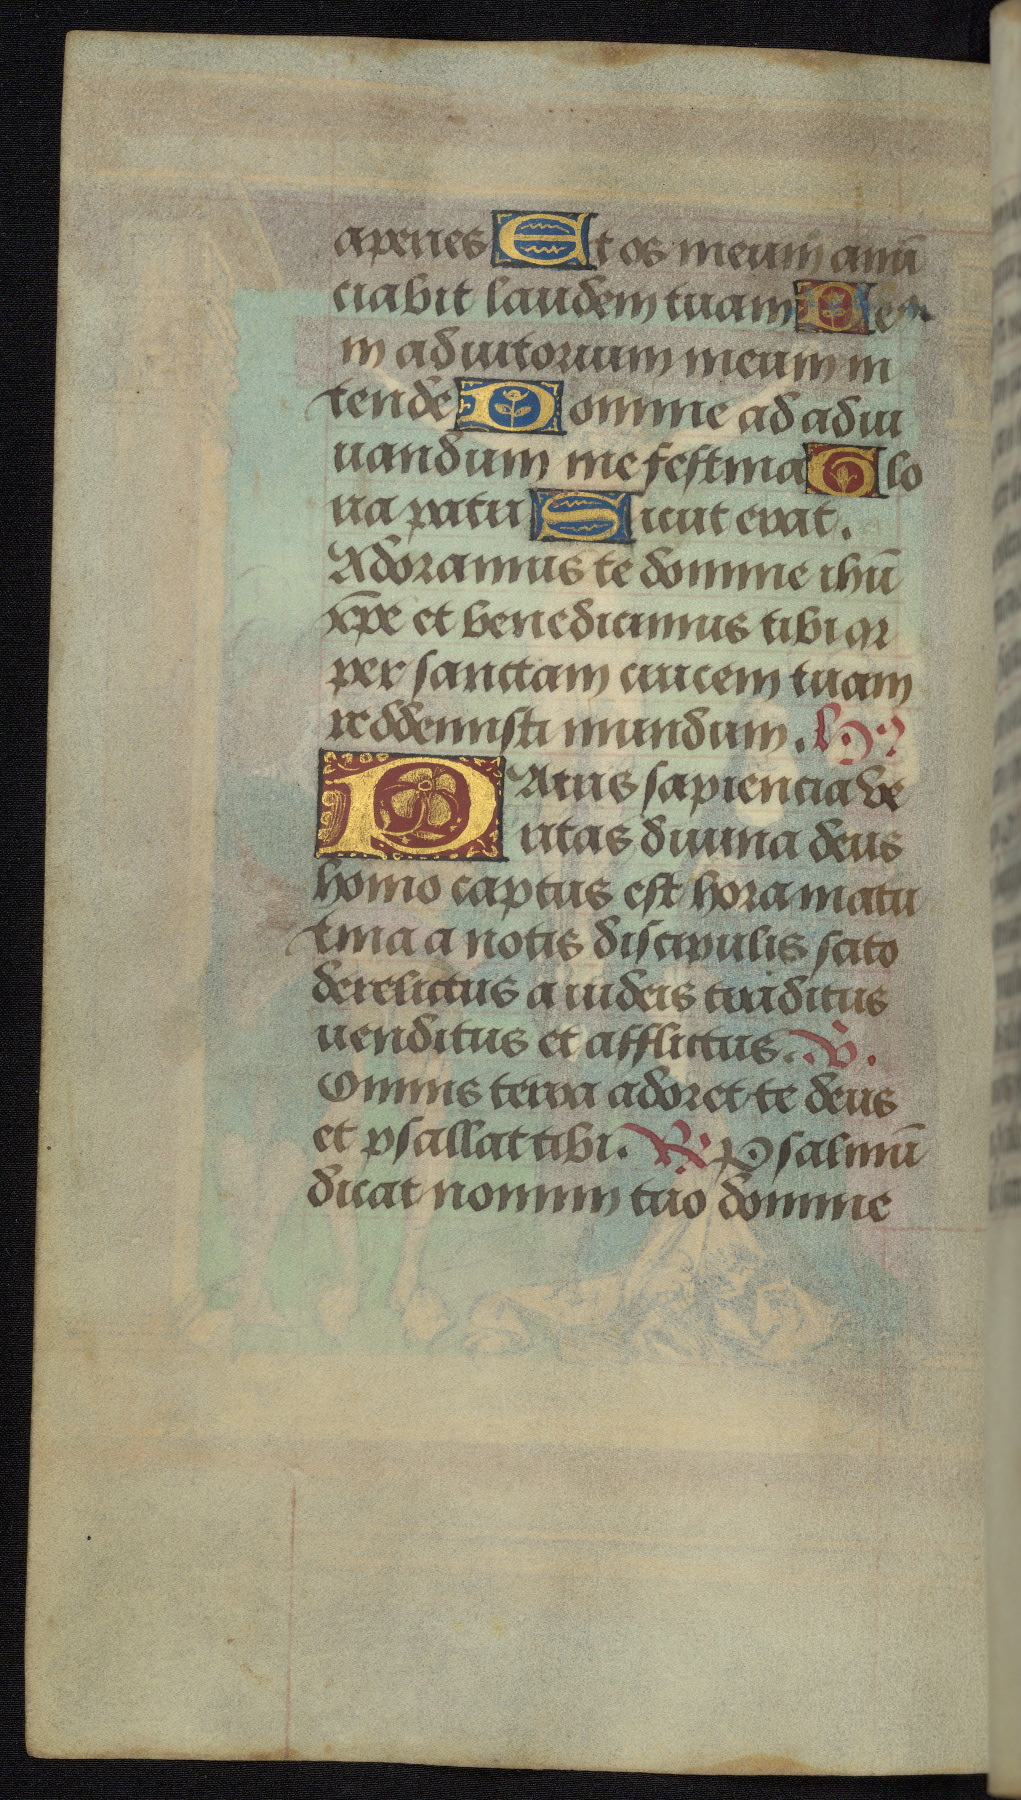 aperies Et os meum anũ
ciabit laudem tuam Deus
in adiutorium meum in
tende Domine ad adiu
uandum me festina Glo
ria patri Sicut erat.
Adoramus te domine ihũ
xp̃e et benedicimus tibi qr
per sanctam crucem tuam
reddemisti mundum. hỹ
PAtris sapiencia ve
ritas diuina deus
homo captus est hora matu
tina a notis discipulis scito
derelictus a iudeis traditus
uenditus et afflictus. V̸.
Omnis terra adoret te deus
et psallat tibi. R̸ Psalmũ
dicat nomini tuo domine